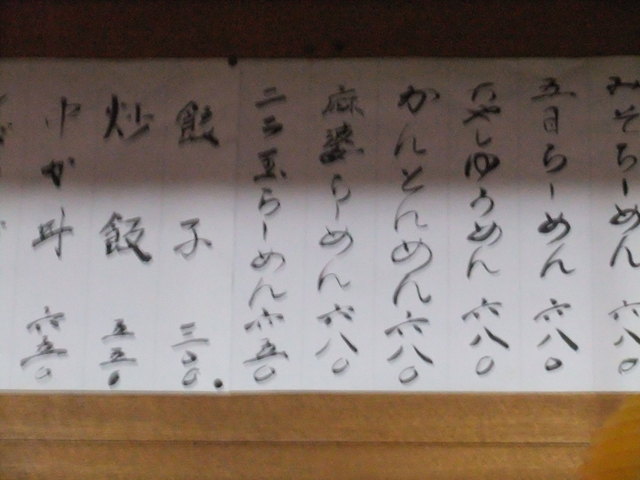 みそらーめん 六八〇
五目らーめん 六八〇
もやしらーめん 六八〇
かんとんめん 六八〇
麻婆らーめん 六八〇
らーめん 六五〇
餃子 三〇〇
炒飯 五五〇
中か丼 六五〇